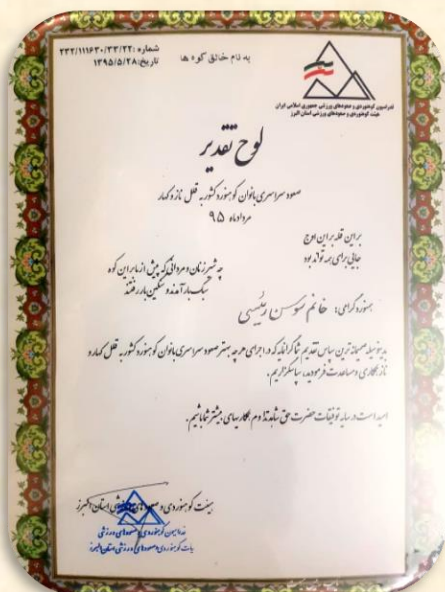 به نام خالق کوه ها
شماره: ۲۳۲/۱۱۱۶۳۰/۳۳/۲۲
تاریخ: ۱۳۹۵/۵/۲۸
فدراسیون کوهنوردی و صعودهای ورزشی جمهوری اسلامی ایران
هیئت کوهنوردی و صعودهای ورزشی استان البرز
لوح تقدیر
صعود سراسری بانوان کوهنورد کشور به قلل ناز و کهار
مردادماه ۹۵
بر این قله بر این اوج
جایی برای همه تواند بود
چه شیرزنان و مردانی که پیش از ما بر این کوه
سبک بار آمدند و سنگین بار رفتند
همنورد گرامی: خانم سوسن رئیسی
بدینوسیله صمیمانه ترین سپاس تقدیم شما گرانمایه که در اجرای هرچه بهتر صعود سراسری بانوان کوهنورد کشور به قلل کهار و
ناز همکاری و مساعدت فرمودید، سپاسگزاریم.
امید است در سایه توفیقات حضرت حق شاهد تداوم همکاریهای بیشتر شما باشیم.
هیئت کوهنوردی و صعودهای ورزشی استان البرز
فدراسیون کوهنوردی و صعودهای ورزشی
هیات کوهنوردی و صعودهای ورزشی استان البرز